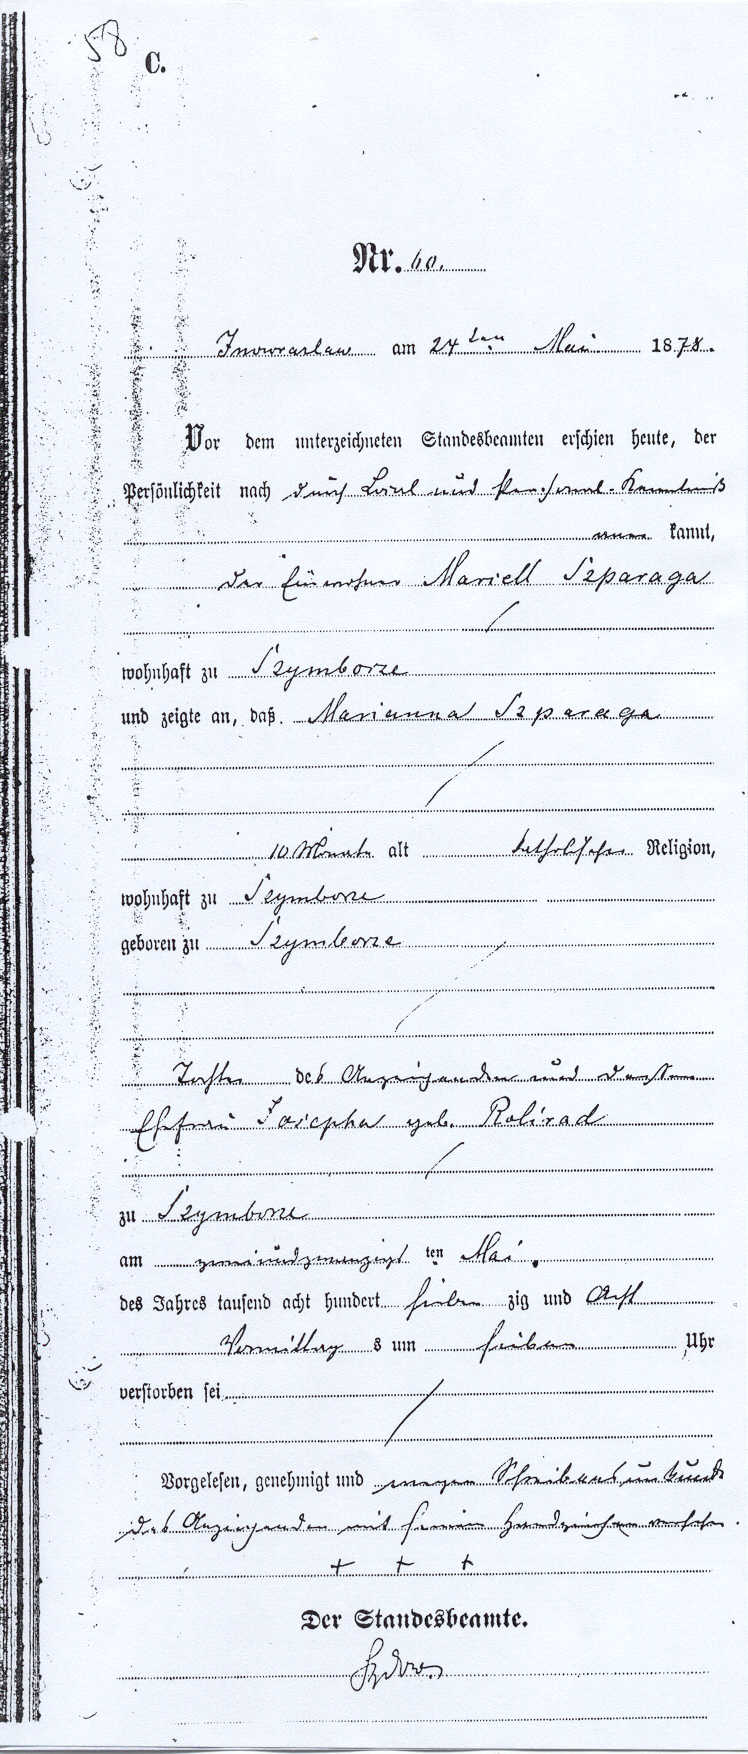 58
C.
Nr. 60.
Inowrazlaw am 24 ten Mai 1878.
Vor dem unterzeichneten Standesbeamten erschien heute, der
Persönlichkeit nach durch Local und Personal-Kenntniß
kannt,
der Einwohner Marcell Szparaga
wohnhaft zu Szymborze
und zeigte an, daß Marianna Szparaga
10 Monate alt katholischer Religion,
wohnhaft zu Szymborze
geboren zu Szymborze
Tochter des Anzeigenden und dessen
Ehefrau Josepha geb. Rolirad
zu Szymborze
am zweiundzwanzigst ten Mai.
des Jahres tausend acht hundert sieben zig und Acht
Vormittag s um sieben Uhr
verstorben sei
Vorgelesen, genehmigt und wegen Schreibensunkunde
des Anzeigenden mit seinem Handzeichen versehen.
+ + +
Der Standesbeamte.